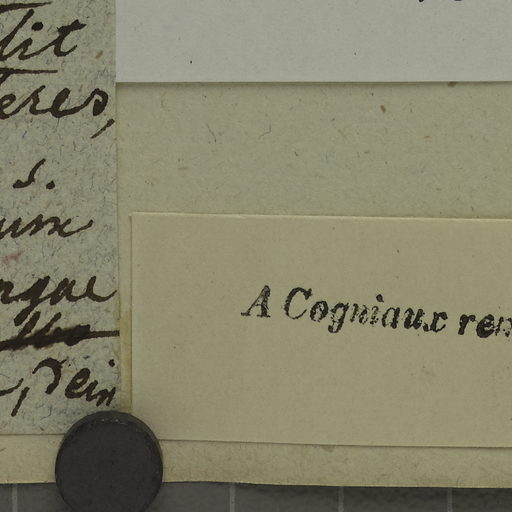 tit
teres,
s.
ungae
dein
A Cogniaux ren